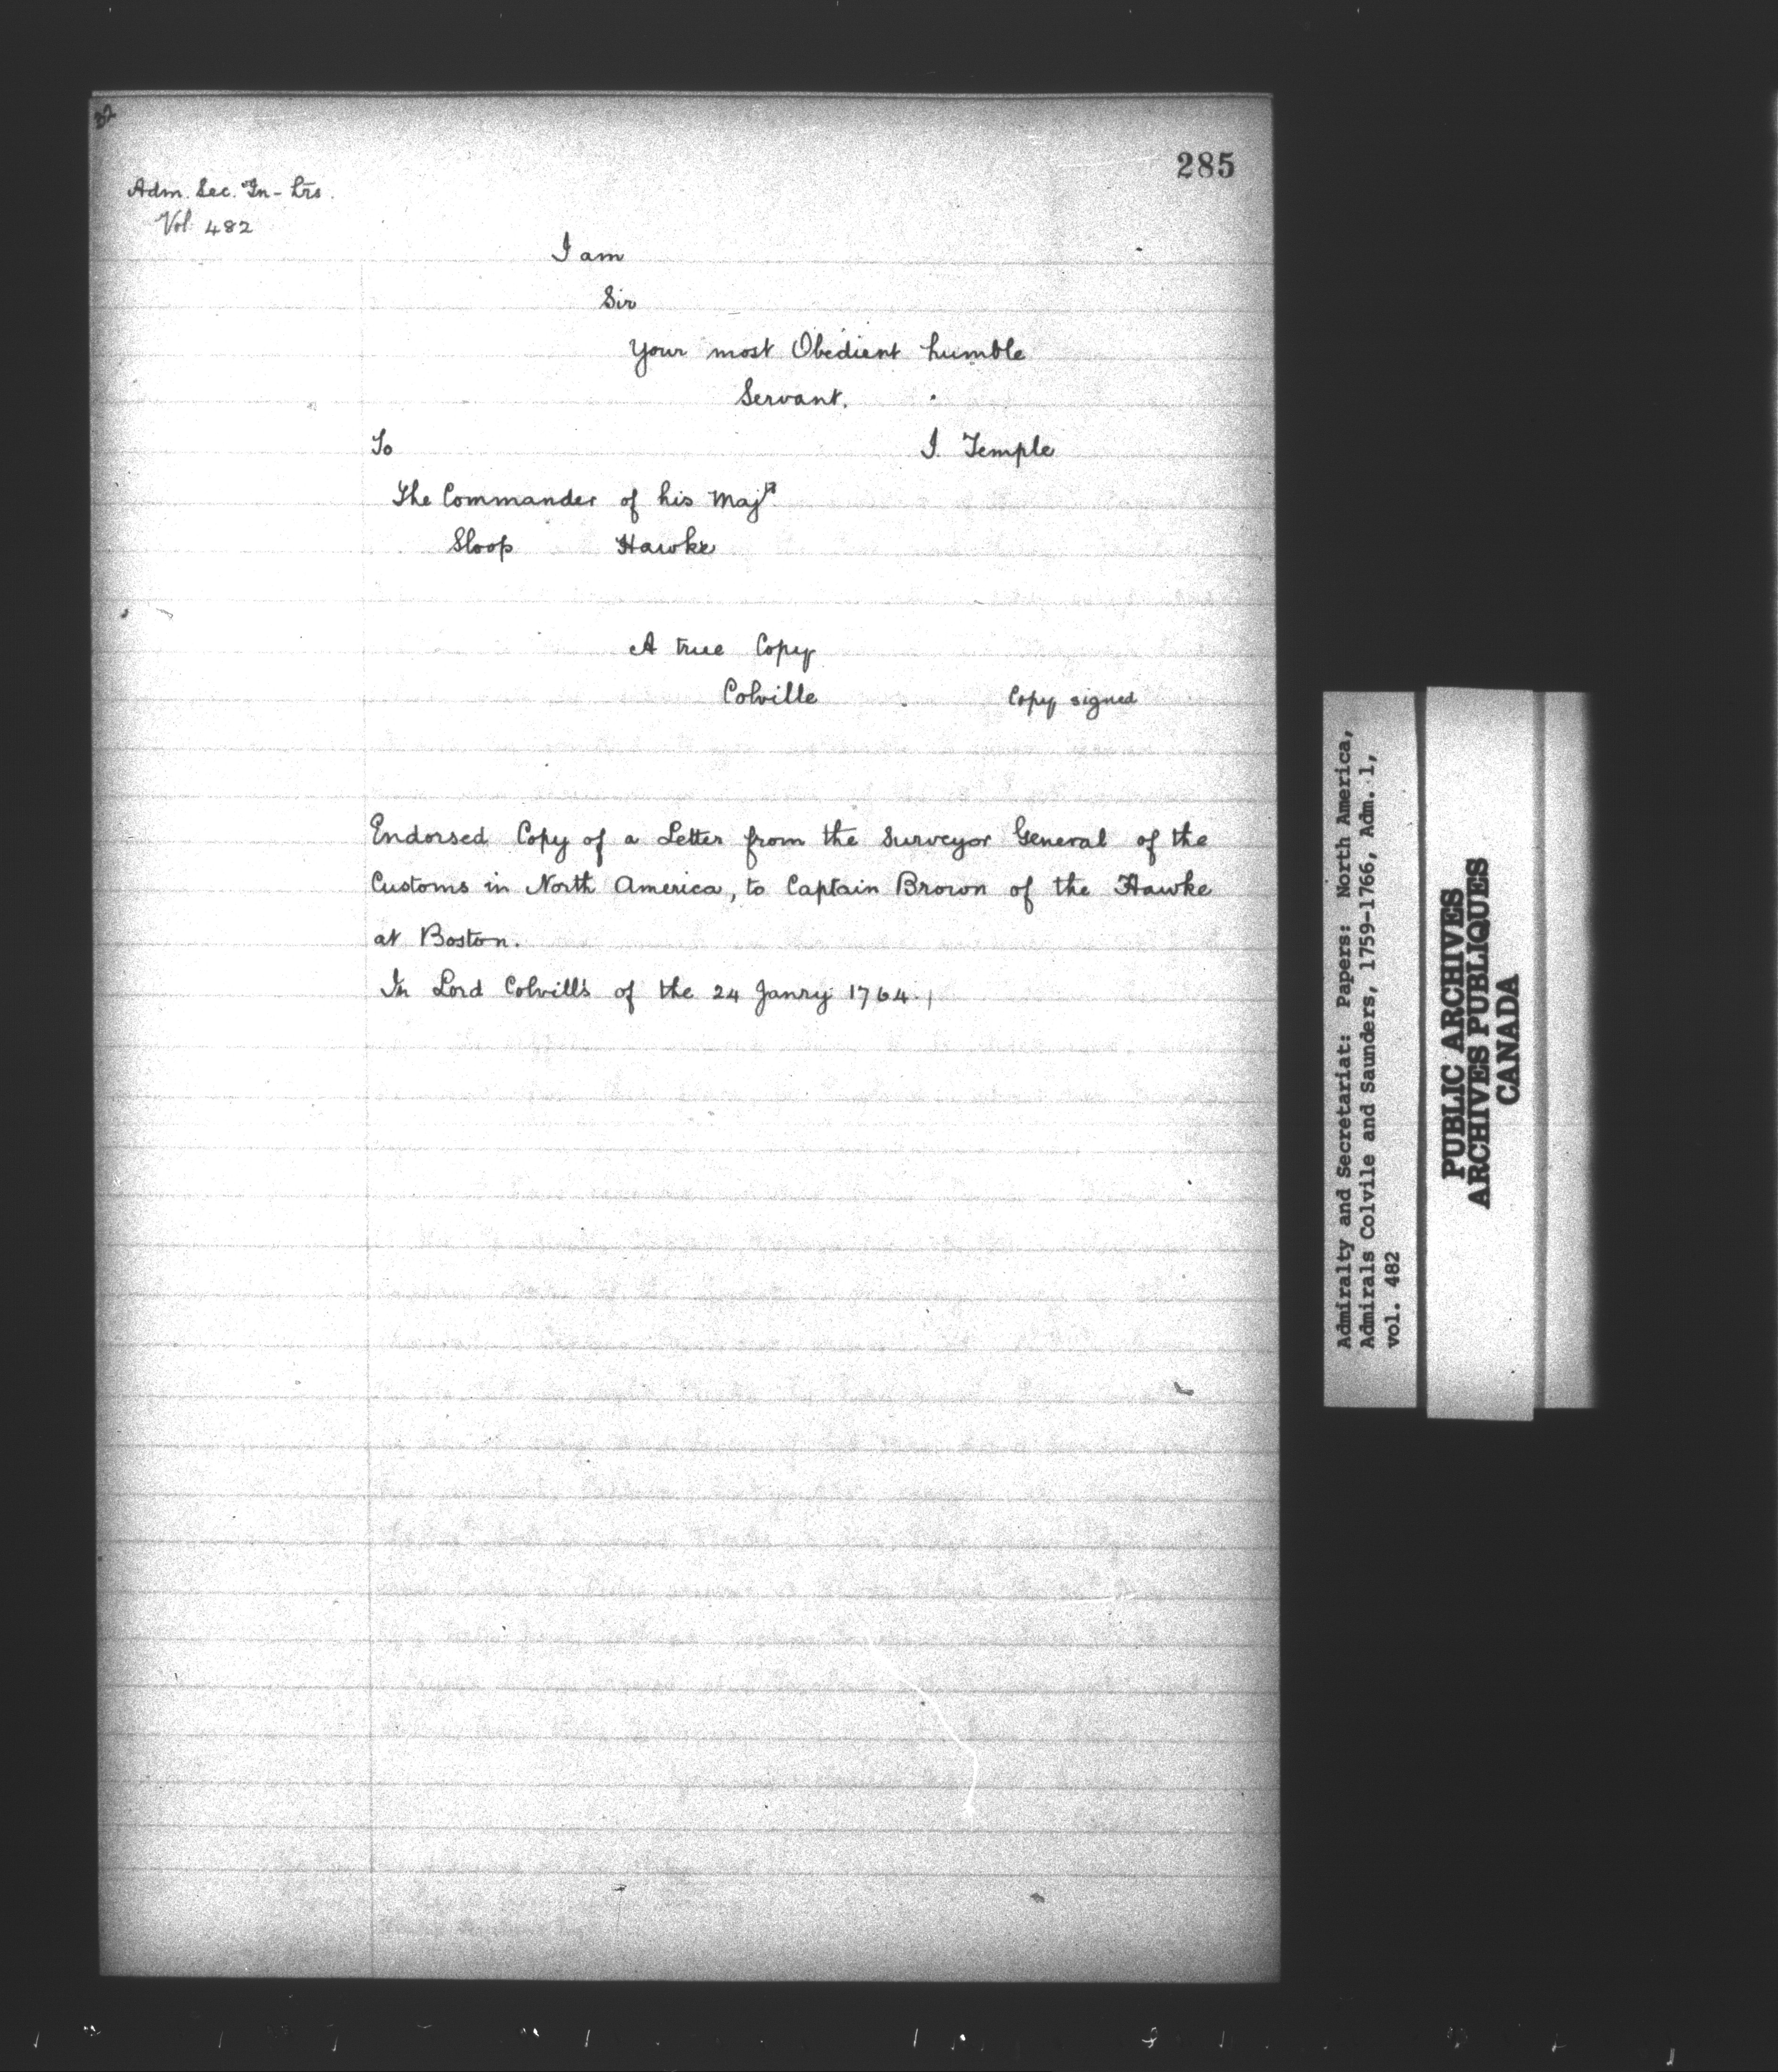 32
285
Adm. Sec. In-Ltrs.
Vol. 482
I am
Sir
Your most Obedient humble
Servant.
To
I. Temple
The Commander of his Maj^ts
Sloop Hawke
A true Copy
Colville
Copy signed
Endorsed Copy of a Letter from the Surveyor General of the
Customs in North America, to Captain Brown of the Hawke
at Boston.
In Lord Colvill's of the 24 Janry 1764.
Admiralty and Secretariat: Papers: North America,
Admirals Colvile and Saunders, 1759-1766, Adm. 1,
vol. 482
PUBLIC ARCHIVES
ARCHIVES PUBLIQUES
CANADA